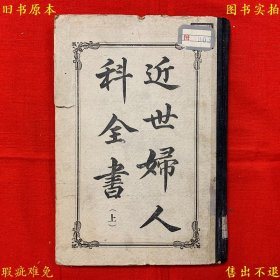 旧书原本
图书实拍
近世婦人
科全書
(上)
瑕疵难免
售出不退